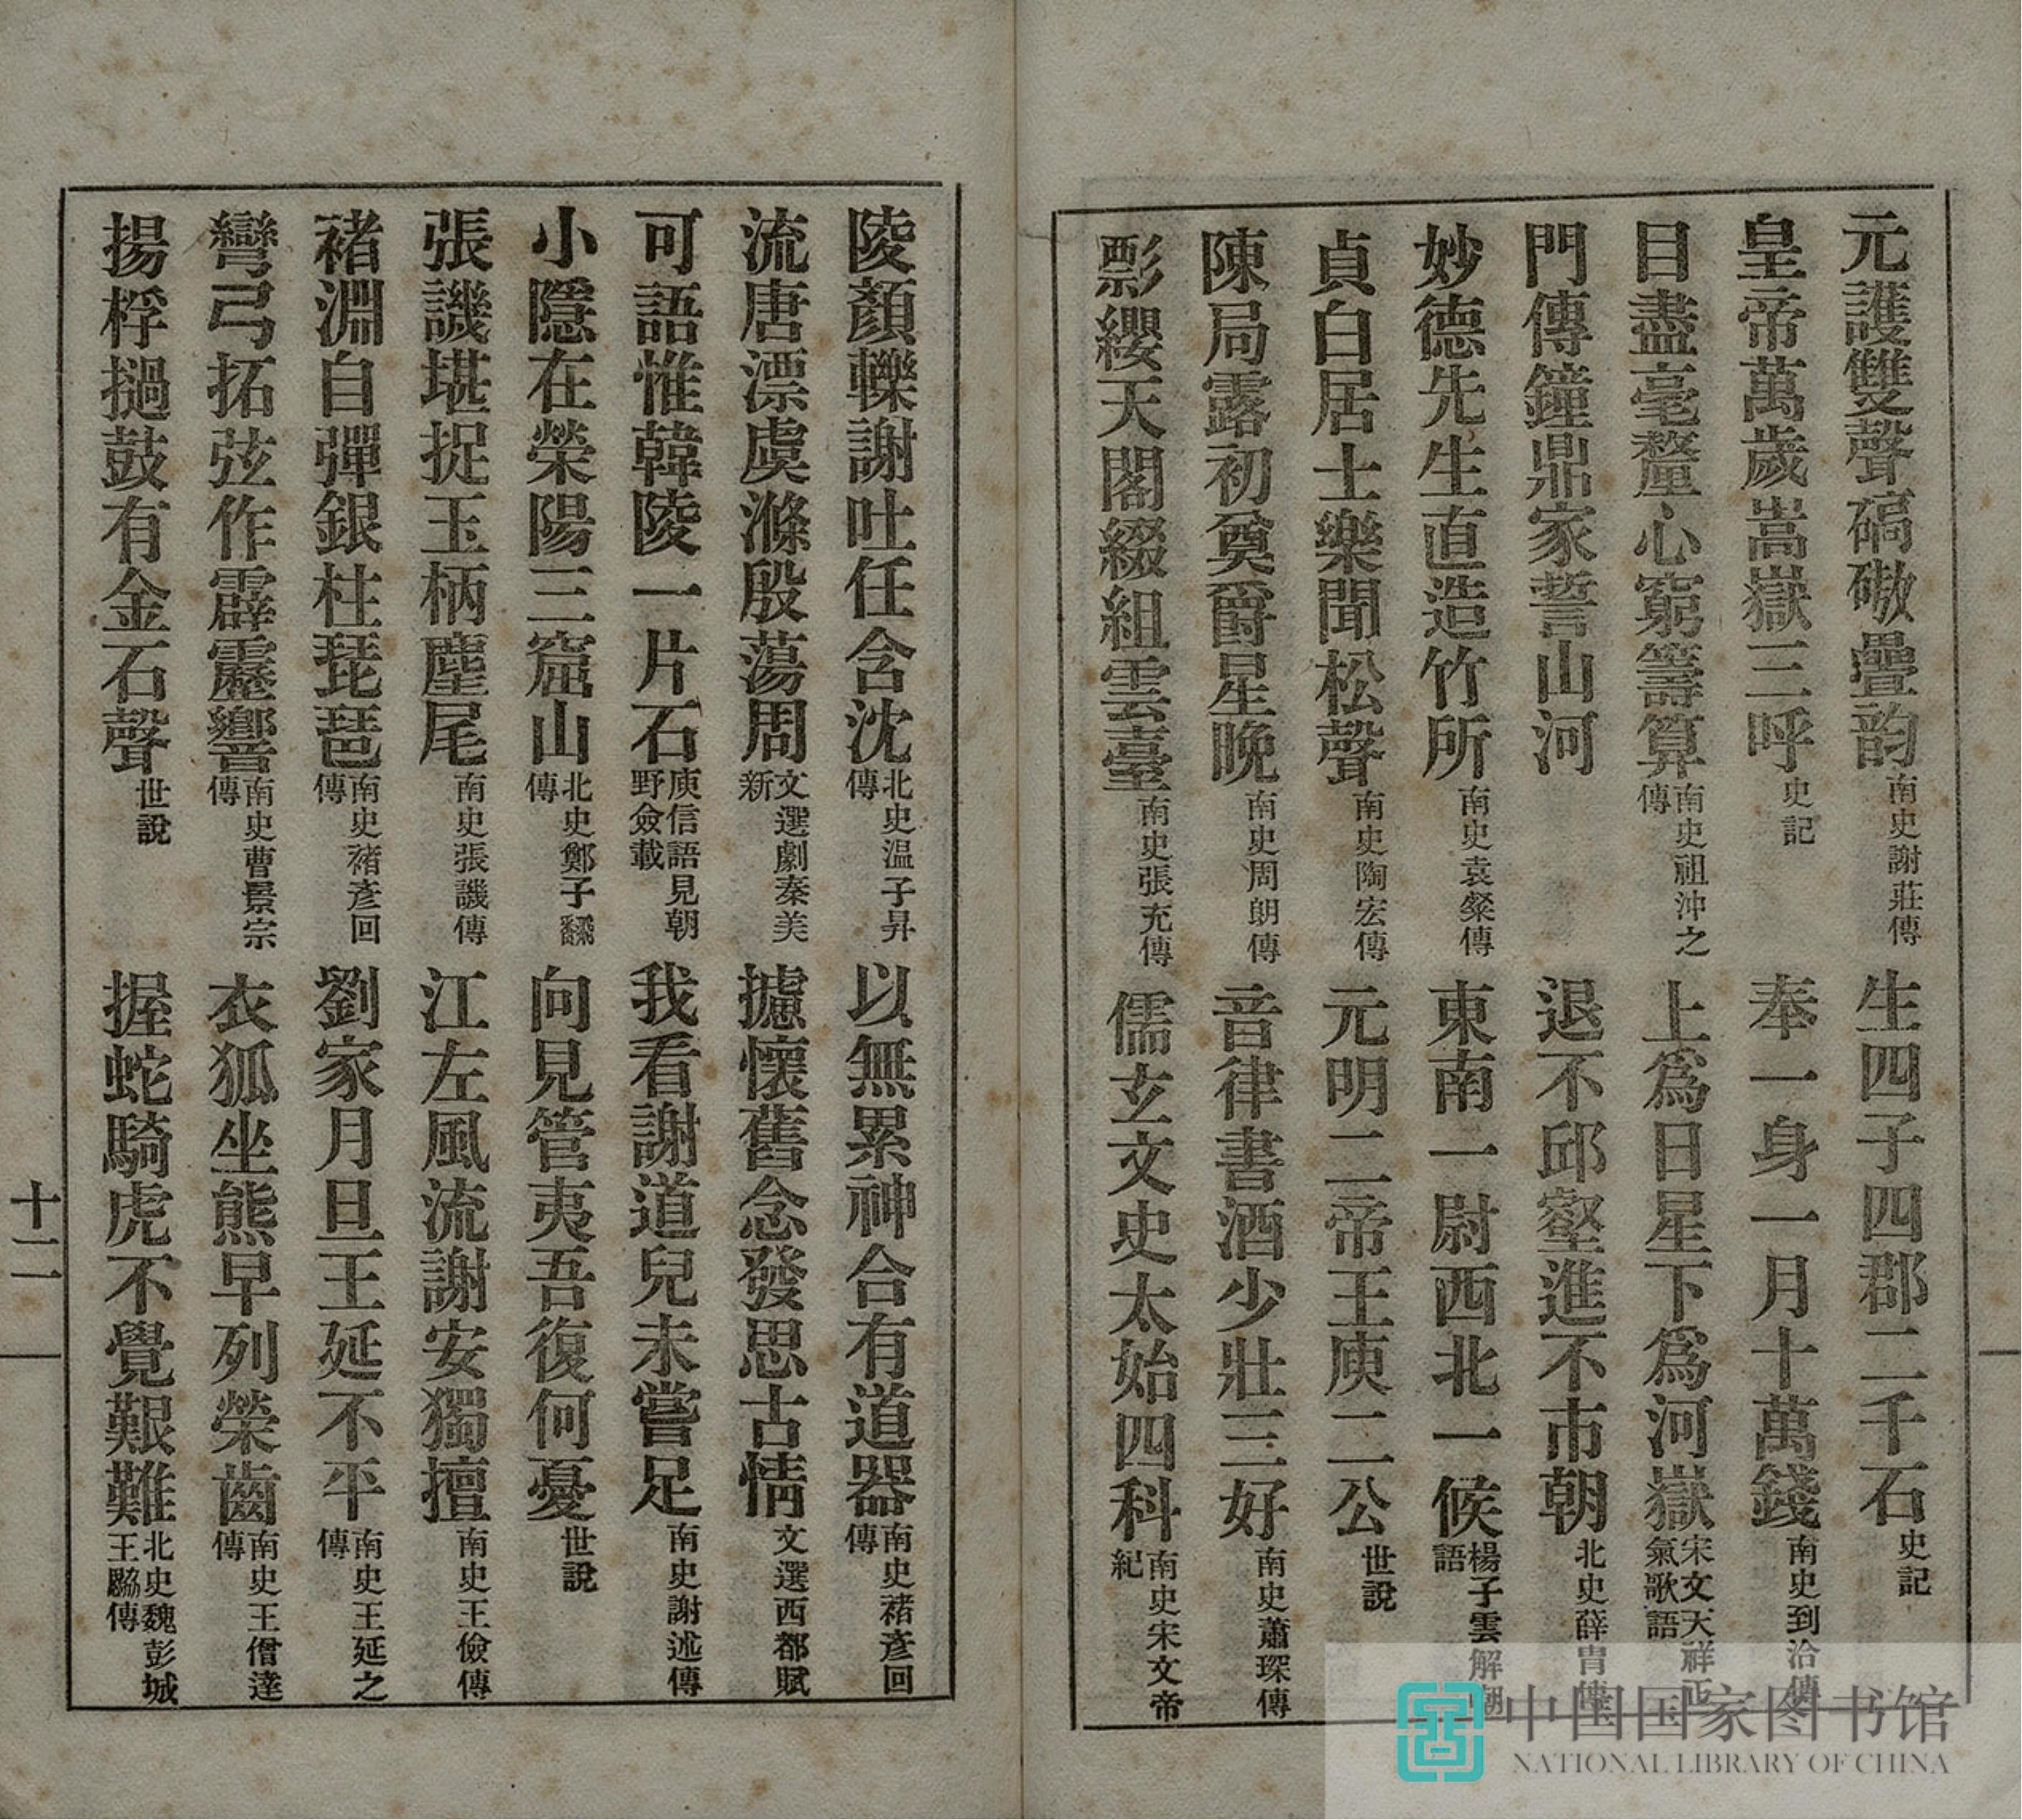 元護雙聲碻磝疊韵南史謝莊傳　生四子四郡二千石史記
皇帝萬歲嵩嶽三呼史記　奉一身一月十萬錢南史到洽傳
目盡毫釐心窮籌算南史祖沖之傳　上爲日星下爲河嶽宋文天祥正氣歌語
門傳鐘鼎家誓山河　退不邱壑進不市朝北史薛胄傳
妙德先生直造竹所南史袁粲傳　東南一尉西北一候楊子雲解嘲語
貞白居士樂聞松聲南史陶宏傳　元明二帝王庾二公世說
陳局露初奠爵星晚南史周朗傳　音律書酒少壯三好南史蕭琛傳
影纓天閣綴組雲臺南史張充傳　儒玄文史太始四科南史宋文帝紀
陵顏轢謝吐任含沈北史温子昇傳　以無累神合有道器南史褚彥回傳
流唐漂虞滌殷蕩周文選劇秦美新　攄懷舊念發思古情文選西都賦
可語惟韓陵一片石庾信語見朝野僉載　我看謝道兒未嘗足南史謝述傳
小隱在榮陽三窟山北史鄭子翻傳　向見管夷吾復何憂世說
張譏堪捉玉柄麈尾南史張譏傳　江左風流謝安獨擅南史王儉傳
褚淵自彈銀柱琵琶南史褚彥回傳　劉家月旦王延不平南史王延之傳
彎弓拓弦作霹靂響南史曹景宗傳　衣狐坐熊早列榮齒南史王僧達傳
揚桴撾鼓有金石聲世說　握蛇騎虎不覺艱難北史魏彭城王勰傳
十二
中国国家图书馆
NATIONAL LIBRARY OF CHINA